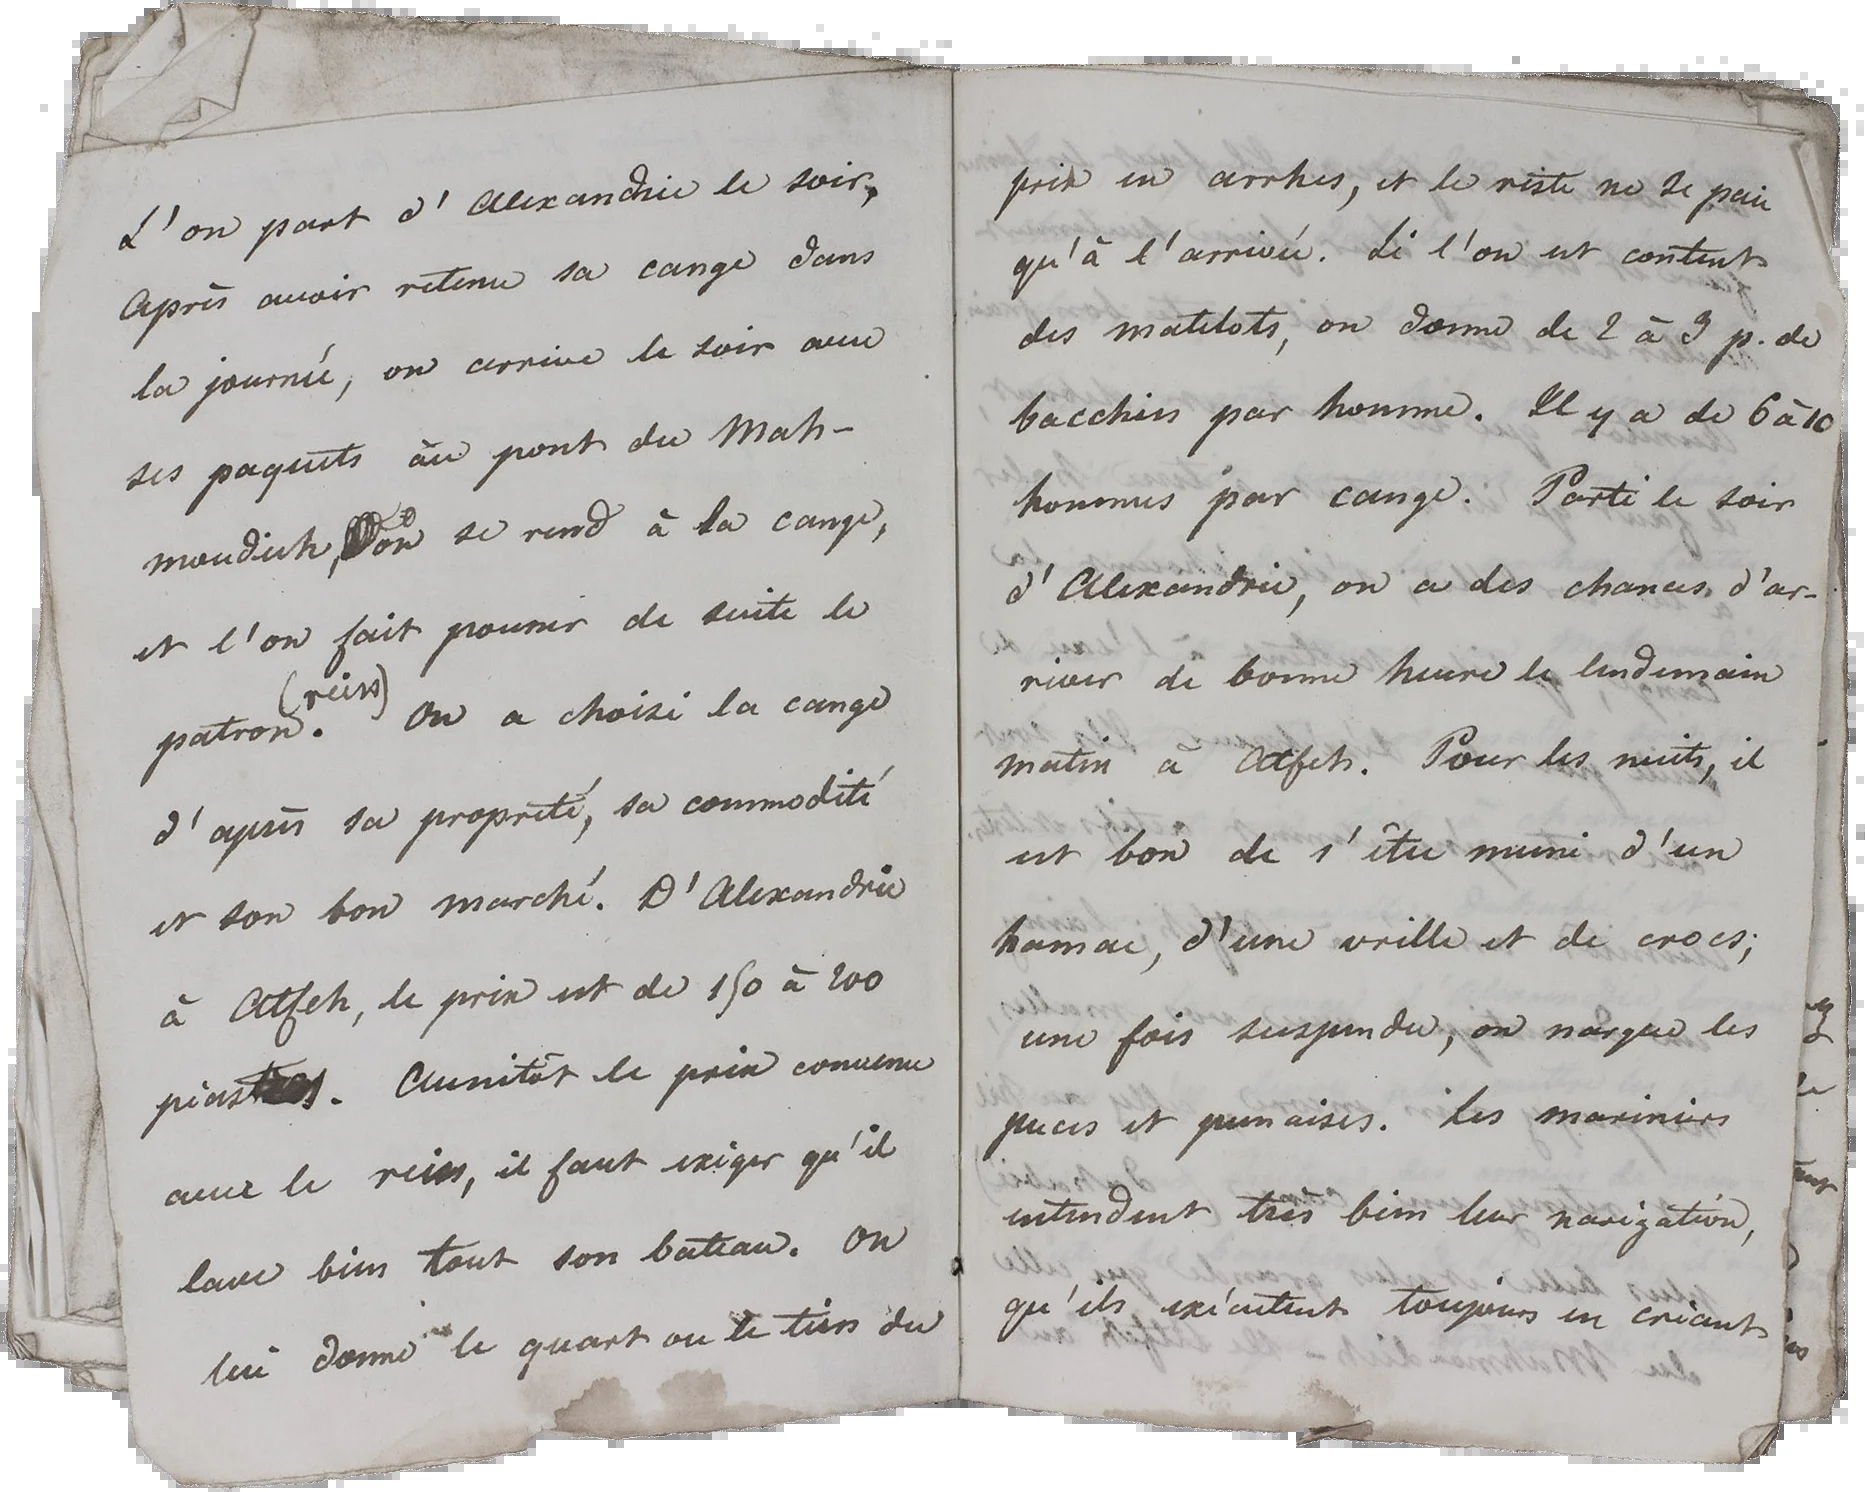 L'on part d'Alexandrie le soir,
Après avoir retenu sa cange dans
la journée, on arrive le soir avec
ses paquets au pont du Mah-
moudieh, on se rend à la cange,
et l'on fait pounir de suite le
patron. (reiss) On a choisi la cange
d'après sa propreté, sa commodité
et son bon marché. D'Alexandrie
à Atfeh, le prix est de 150 à 200
piastres. Aussitôt le prix convenu
avec le reiss, il faut exiger qu'il
lave bien tout son bateau. On
lui donne le quart ou le tiers du
prix en arrhes, et le reste ne se paie
qu'à l'arrivée. Si l'on est content
des matelots, on donne de 2 à 3 p. de
bacchiss par homme. Il y a de 6 à 10
hommes par cange. Parti le soir
d'Alexandrie, on a des chances d'ar-
river de bonne heure le lendemain
matin à Atfeh. Pour les nuits, il
est bon de s'être muni d'un
hamac, d'une vrille et de crocs;
une fois suspendu, on nargue les
puces et punaises. Les mariniers
entendent très bien leur navigation,
qu'ils exécutent toujours en criant